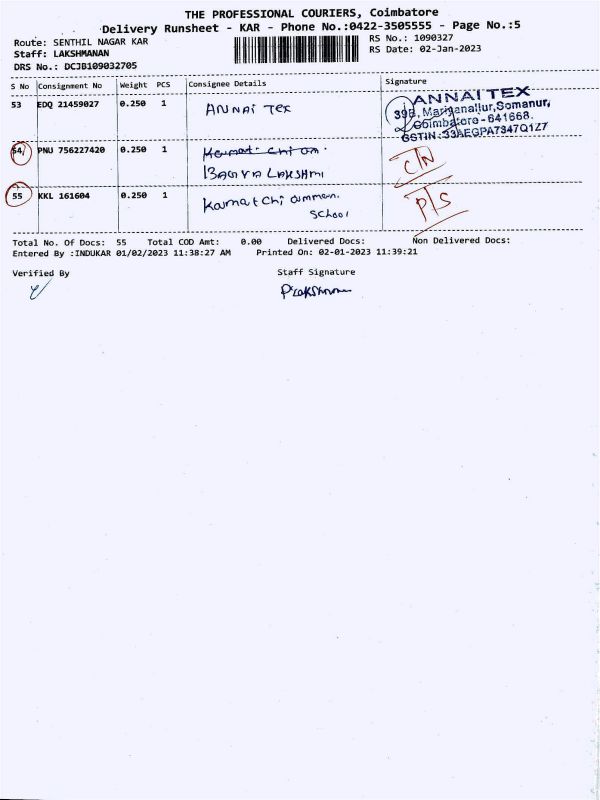 THE PROFESSIONAL COURIERS, Coimbatore
Delivery Runsheet - KAR - Phone No.:0422-3505555 - Page No.:5
Route: SENTHIL NAGAR KAR RS No.: 1090327
Staff: LAKSHMANAN RS Date: 02-Jan-2023
DRS No.: DCJB109032705
S No Consignment No Weight PCS Consignee Details Signature
53 EDQ 21459027 0.250 1 ANNAI TEX
ANNAI TEX
39B, Mariganallur, Somanur,
Coimbatore - 641668.
GSTIN:33AEGPA7347Q1Z7
54 PNU 756227420 0.250 1 C/N
BAGYA LAKSHMI
55 KKL 161604 0.250 1 Kamatchi amman P/S
School
Total No. Of Docs: 55 Total COD Amt: 0.00 Delivered Docs: Non Delivered Docs:
Entered By :INDUKAR 01/02/2023 11:38:27 AM Printed On: 02-01-2023 11:39:21
Verified By Staff Signature